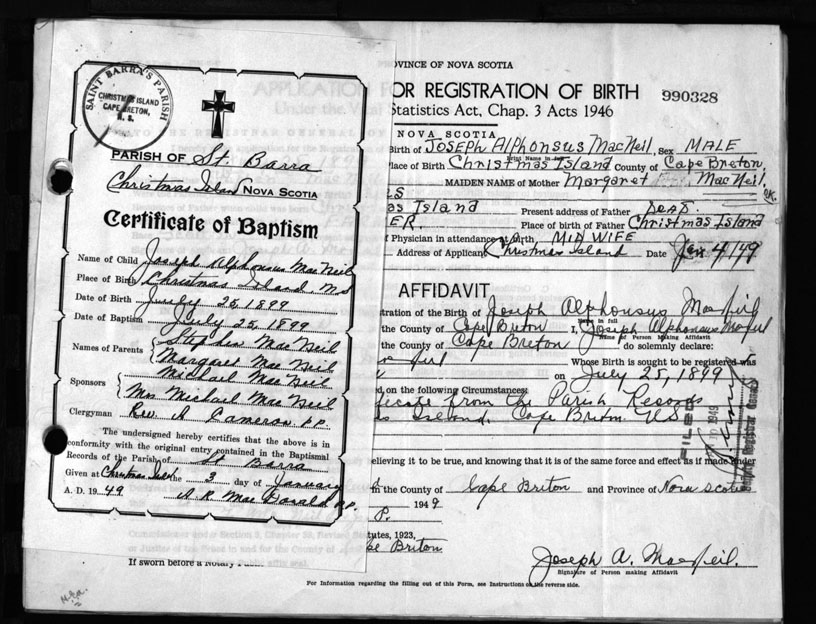 SAINT BARRA'S PARISH
CHRISTMAS ISLAND
CAPE BRETON,
N. S.
PARISH OF St. Barra
Christmas Island NOVA SCOTIA
Certificate of Baptism
Name of Child Joseph Alphonsus MacNeil
Place of Birth Christmas Island N.S
Date of Birth July 25, 1899
Date of Baptism July 25, 1899
Names of Parents { Stephen MacNeil
Margaret MacNeil
Sponsors { Michael MacNeil
Mrs Michael MacNeil
Clergyman Rev. A Cameron P.P.
The undersigned hereby certifies that the above is in
conformity with the original entry contained in the Baptismal
Records of the Parish of St Barra
Given at Christmas Isld the 3 day of January
A. D. 19 49 A R MacDonald P.P.
If sworn before a Notary Public affix seal.
OVINCE OF NOVA SCOTIA
OR REGISTRATION OF BIRTH
990328
Statistics Act, Chap. 3 Acts 1946
NOVA SCOTIA
Birth of JOSEPH AlPHONSUS MacNeil, Sex MALE
Print Name in full
Place of Birth Christmas Island County of Cape Breton,
MAIDEN NAME of Mother Margaret MacNeil.
OK.
ES
as Island Present address of Father DEAD.
ER. Place of birth of Father Christmas Island
f Physician in attendance at Birth MID WIFE
Address of Applicant Christmas Island Date Jan 4/49
AFFIDAVIT
stration of the Birth of Joseph Alphonsus MacNeil
Name in full
the County of Cape Breton I, Joseph Alphonsus MacNeil
Name of Person Making Affidavit
the County of Cape Breton do solemnly declare:
Whose Birth is sought to be registered was
on July 25, 1899
ed, on the following Circumstances:
ficate from the Parish Records
as Island. Cape Breton. N.S
FILED
1949
Deputy Registrar General
elieving it to be true, and knowing that it is of the same force and effect as if made under
in the County of Cape Breton and Province of Nova Scotia
1949
P.
tutes, 1923,
pe Breton
Joseph A. MacNeil.
Signature of Person making Affidavit
For Information regarding the filling out of this Form, see Instructions on the reverse side.